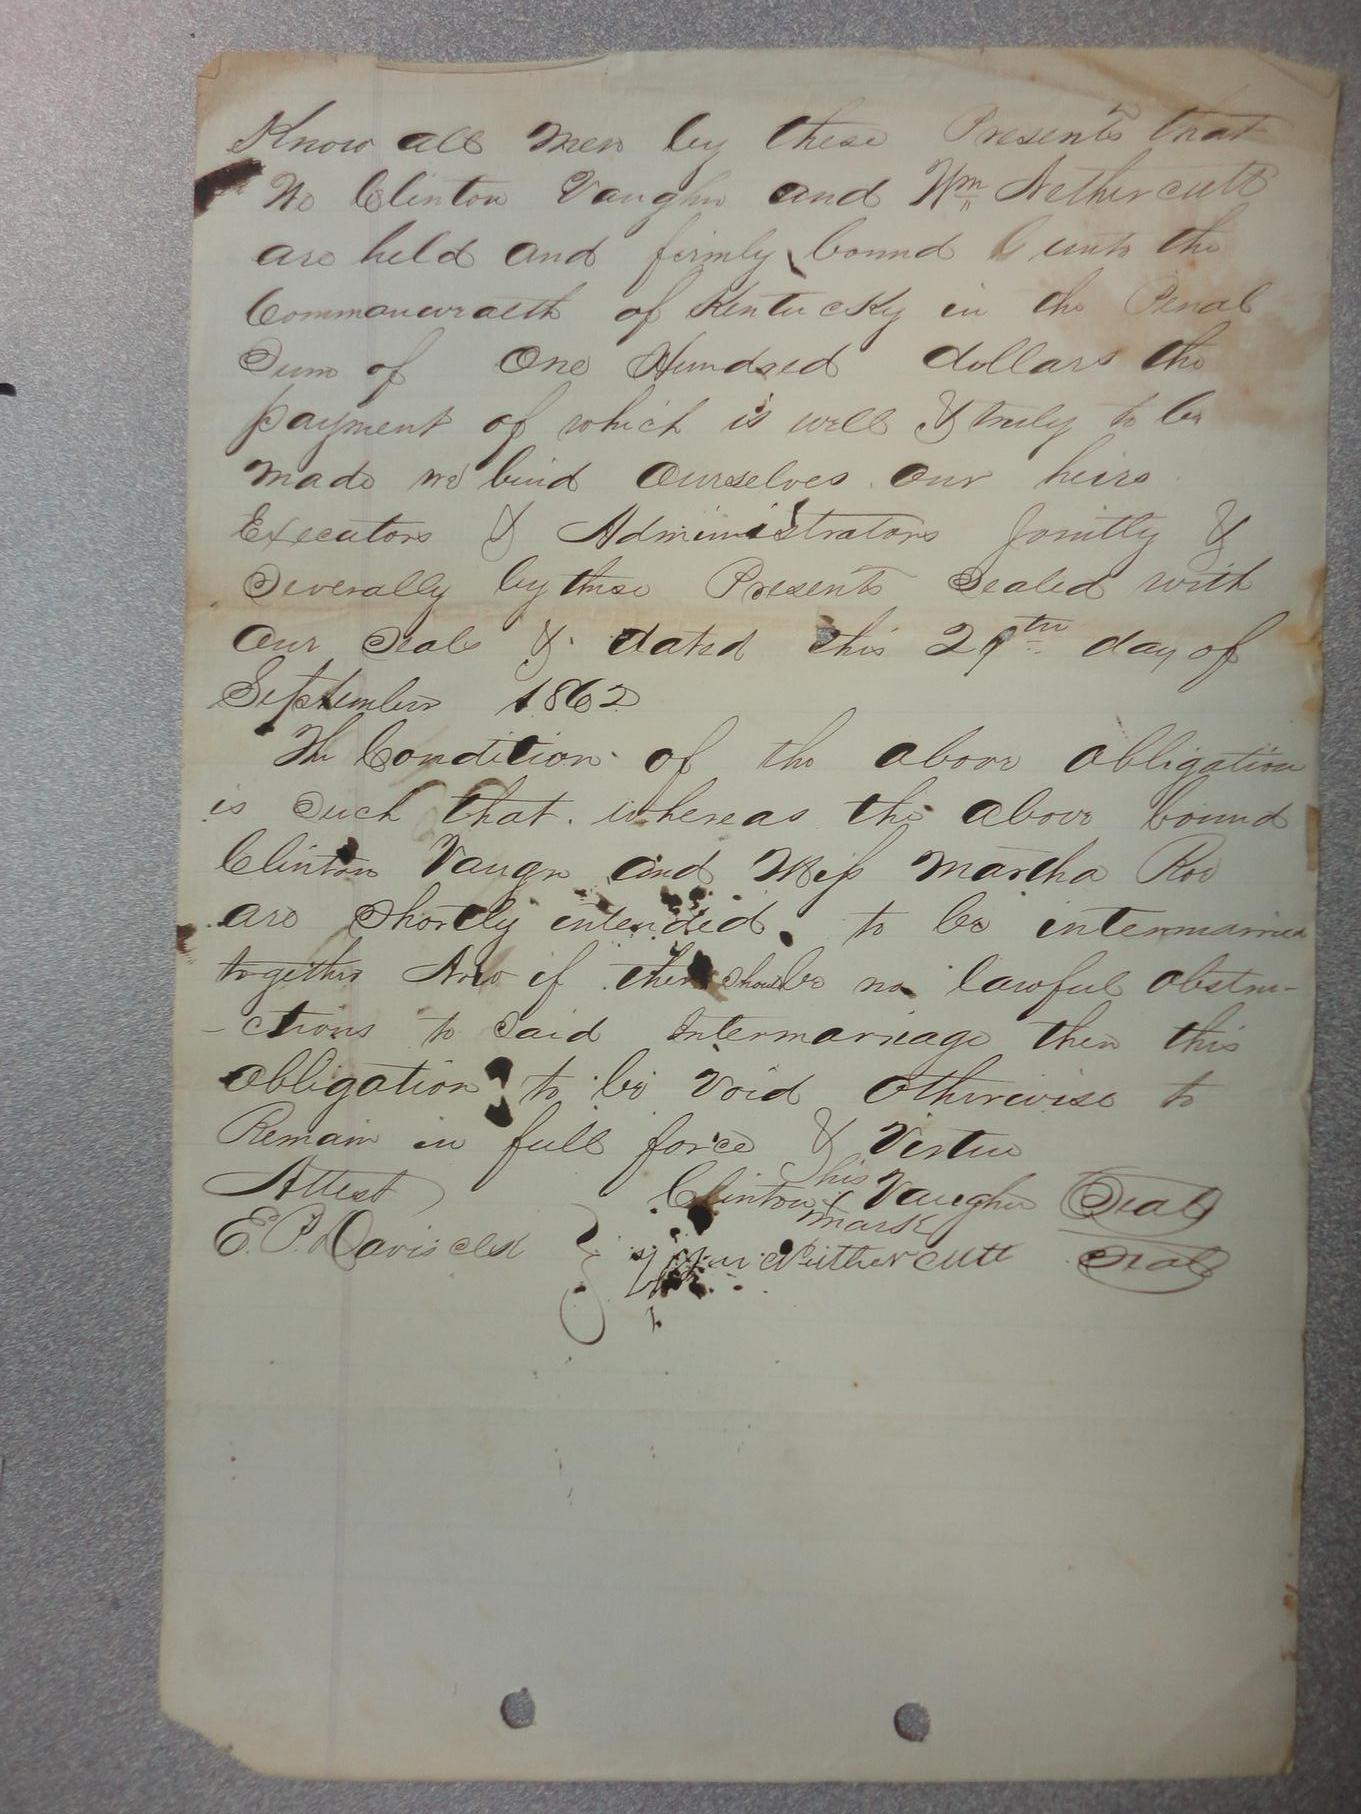 Know all Men by these Presents that
We Clinton Vaughn and Wm Nethercutt
are held and firmly bound unto the
Commonwealth of Kentucky in the Penal
Sum of One Hundred dollars the
payment of which is well & truly to be
made we bind Ourselves our heirs
Executors & Administrators Jointly &
Severally by these Presents Sealed with
Our Seals & dated this 29th day of
September 1862
The Condition of the above obligation
is Such that whereas the above bound
Clinton Vaugn and Miss Martha Roe
are Shortly intended to be intermarried
together Now if there should be no lawful obstru-
-ctions to Said Intermariage then this
obligation to be Void Otherwise to
Remain in full force & Virtue
Attest Clinton his Vaughn Seal
mark
E. P. Davis clk Wm Neithercutt Seal